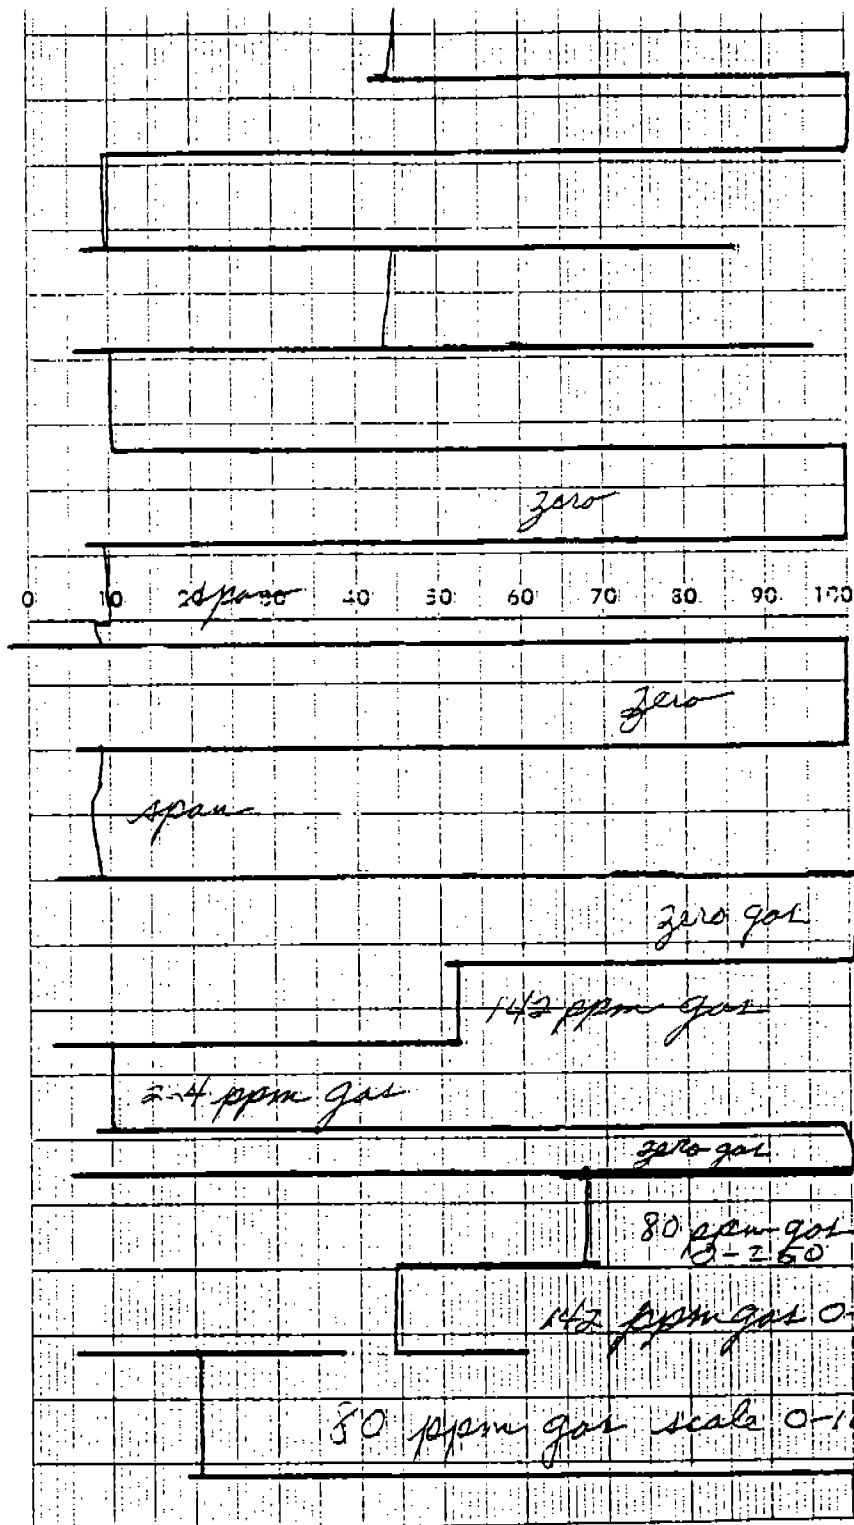 zero
0 10 20 span 30 40 50 60 70 80 90 100
zero
span
zero gas
142 ppm gas
2-4 ppm gas
zero gas
80 ppm gas
0-250
142 ppm gas 0-
80 ppm gas scale 0-10